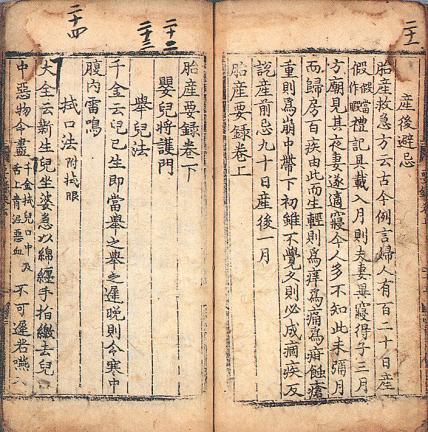 二十一
産後避忌
胎産救急方云古今例言婦人有百二十日産
假假當作暇禮記具載入月則夫妻異寢待子三月
方廟見其夜妻遂適寢今人多不知此未彌月
而歸房百疾由此而生輕則爲痒爲痛爲蝕瘡
重則爲崩中帶下初雖不覺久則必成痼疾又
說産前忌九十日産後一月
胎産要錄卷上
二十二
二十三
二十四
胎産要錄卷下
嬰兒將護門
擧兒法
千金云兒已生即當擧之擧之遲晚則令寒中
腹内雷鳴
拭口法附拭眼
大全云新生兒坐婆急以綿纏手拍繳去兒
中惡物令盡千金拭兒口中及舌上青泥惡血不可遲若嚥入